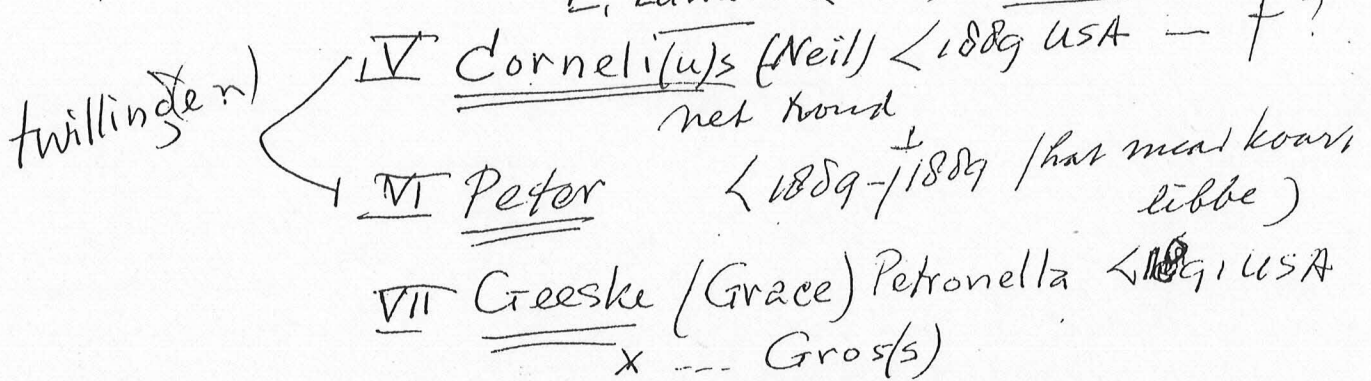 IV Corneli(u)s (Neil) < 1889 USA — † ?
net troud
twilling(en)
VI Peter < 1889 - † 1889 (hat mear koart libbe)
VII Geeske (Grace) Petronella < 1891 USA
x --- Gros(s)